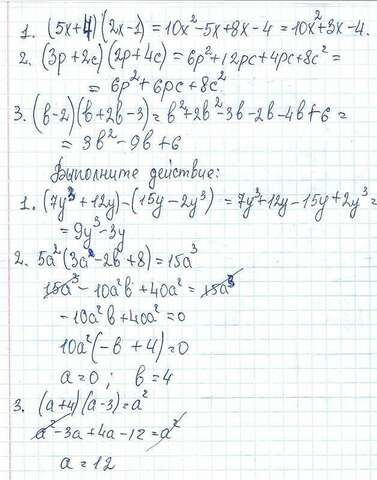 1. (5x+4)(2x-1)=10x²-5x+8x-4=10x²+3x-4.
2. (3p+2c)(2p+4c)=6p²+12pc+4pc+8c²=
= 6p²+6pc+8c²
3. (в-2)(в+2в-3)=в²+2в²-3в-2в-4в+6=
= 3в²-9в+6
Выполните действие:
1. (7y³+12y)-(15y-2y³)=7y³+12y-15y+2y³=
=9y³-3y
2. 5a²(3a²-2в+8)=15a³
15a³-10a²в+40a²=15a³
-10a²в+40a²=0
10a²(-в+4)=0
a=0; в=4
3. (a+4)(a-3)=a²
a²-3a+4a-12=a²
a=12